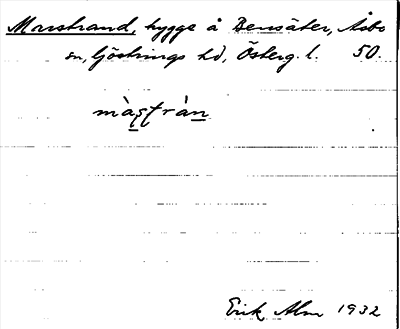 Morstrand, bygge å Bensäter, Åsbo
sn, Göstrings hd, Österg. l. 50.
màstràn
Erik Alm 1932